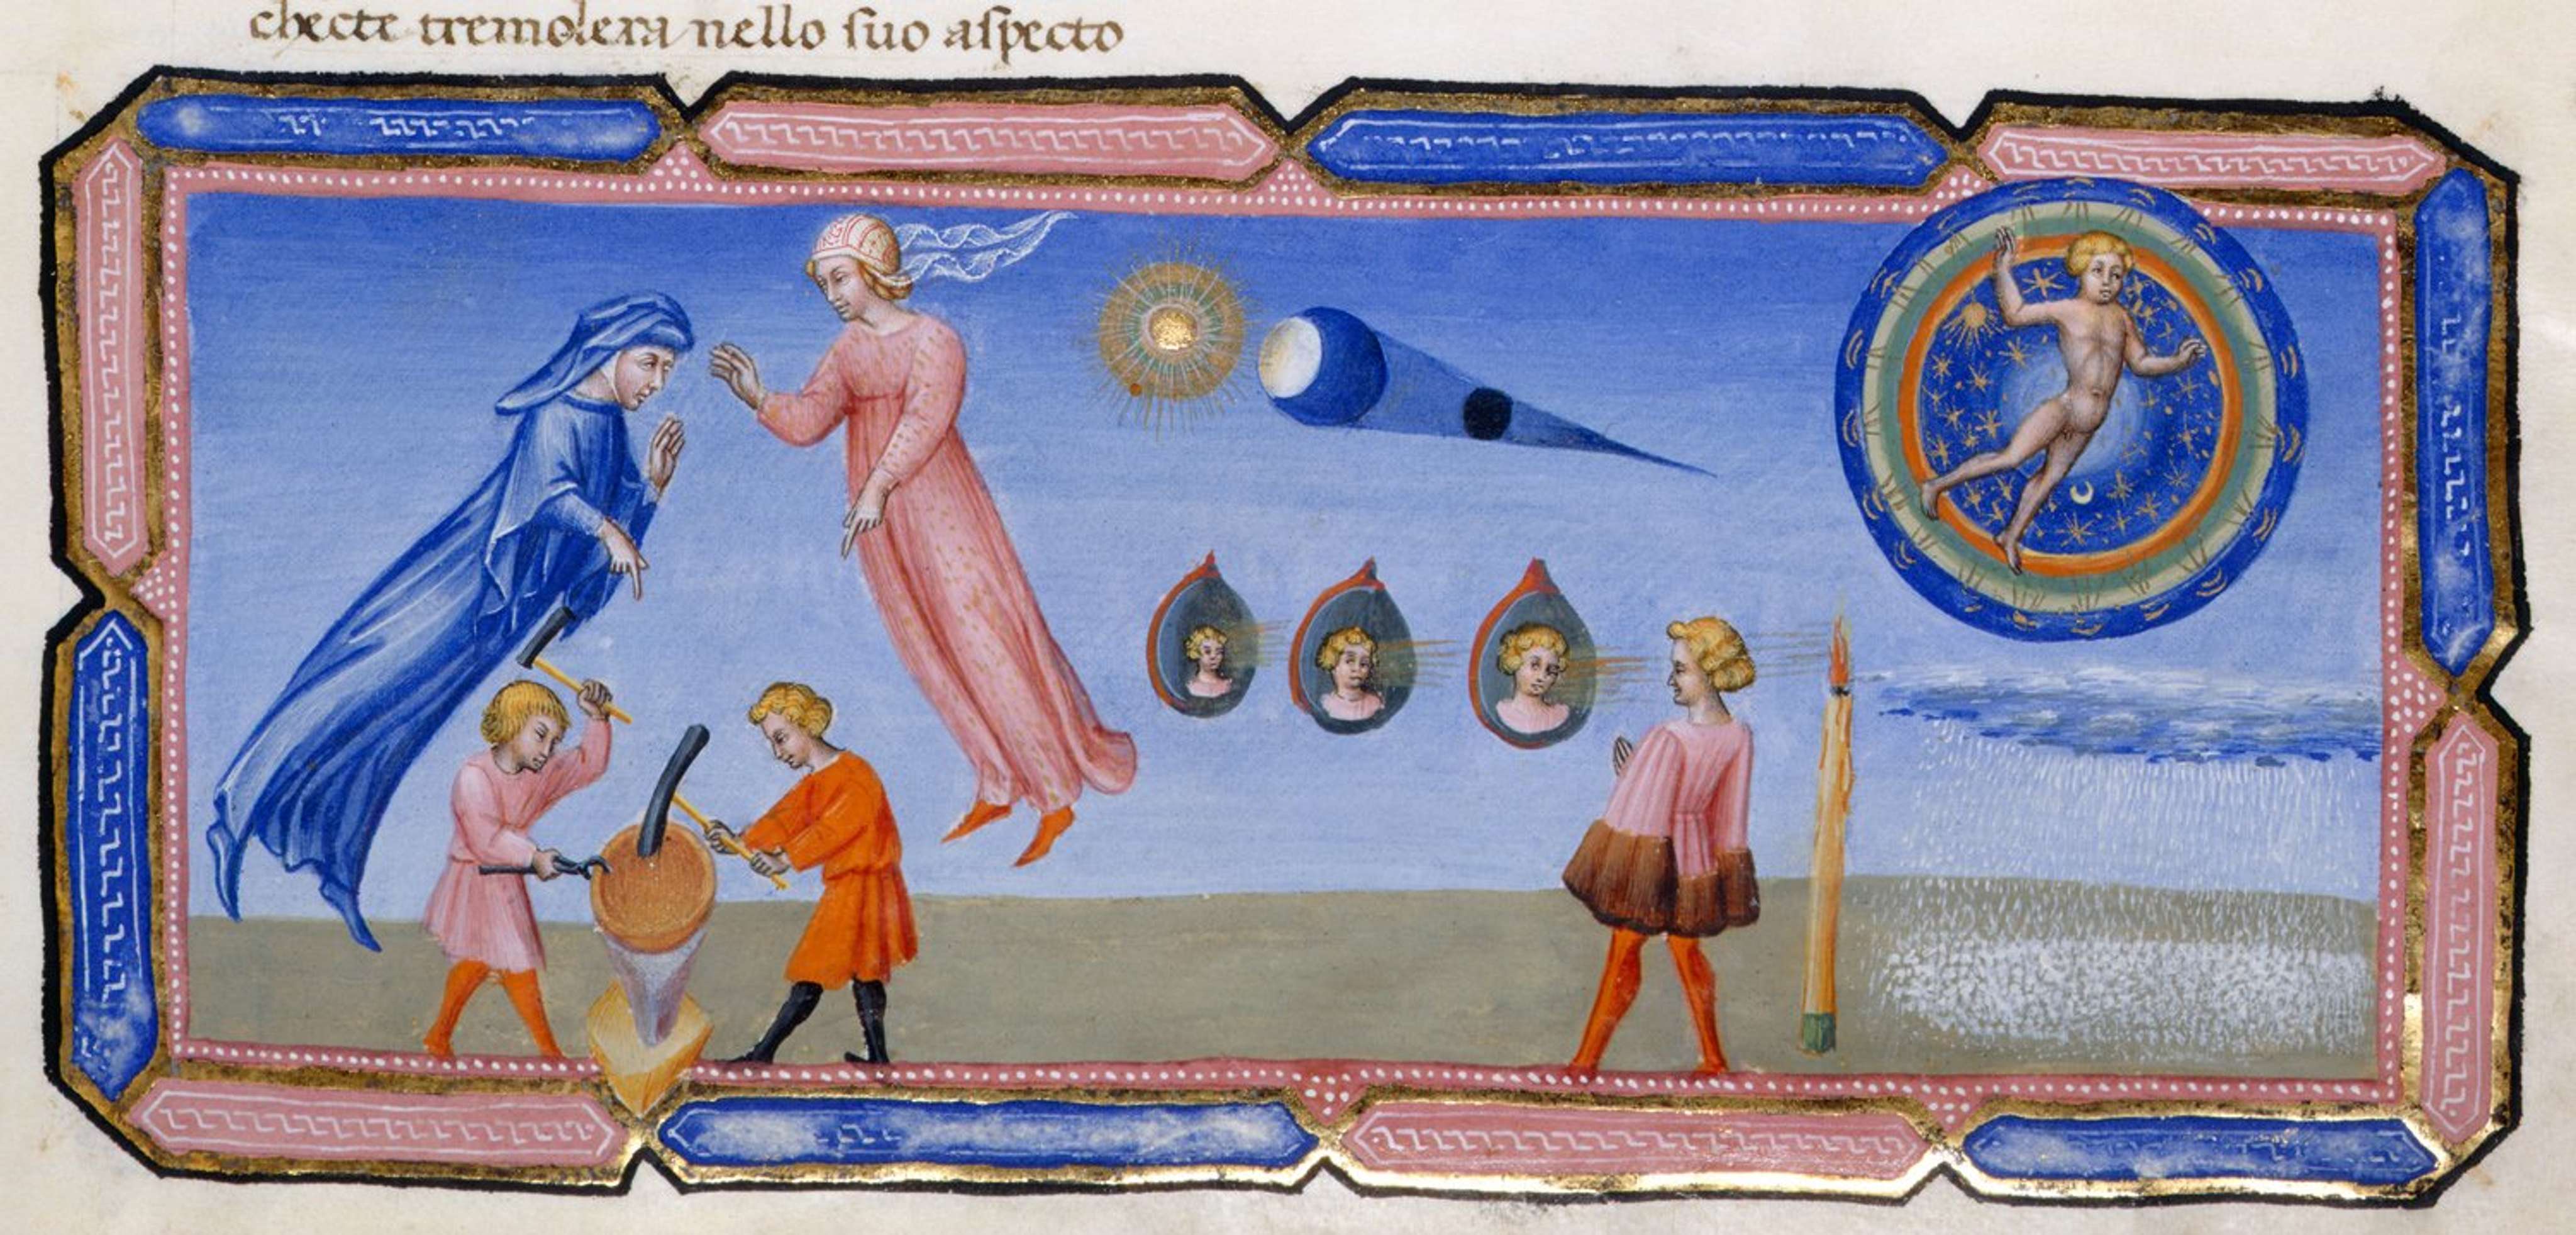 checte tremolera nello suo aspecto